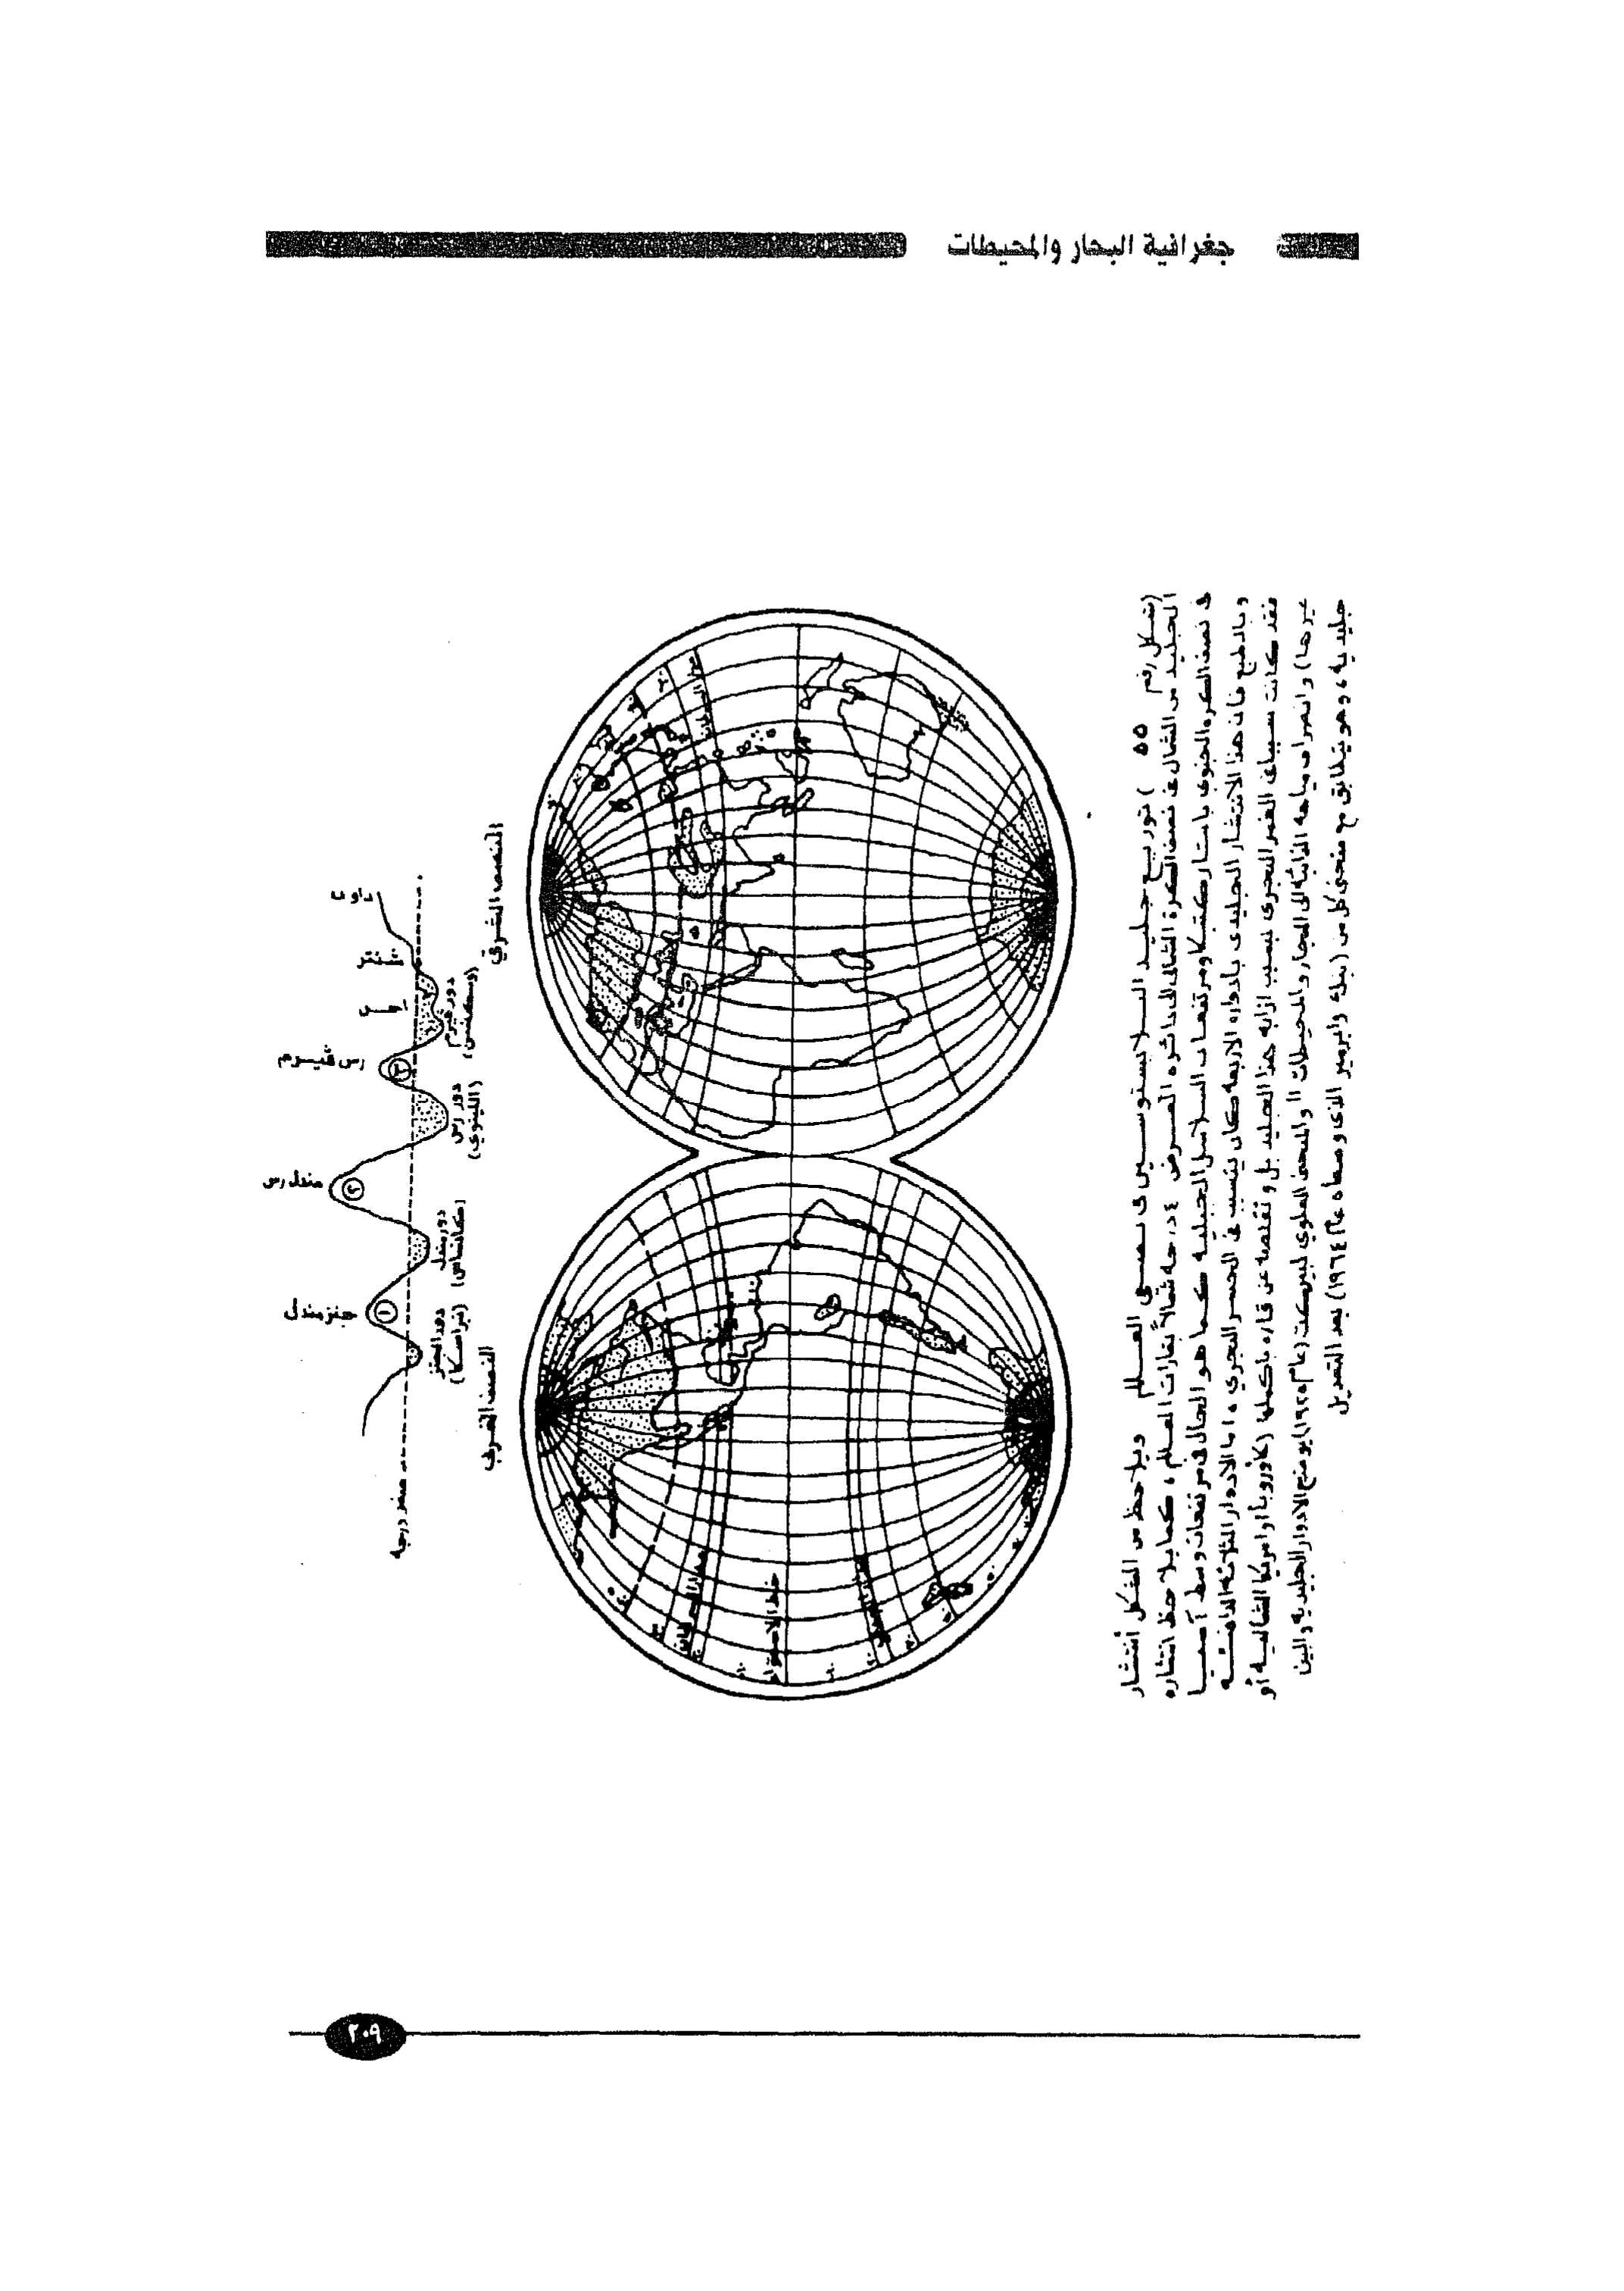 جغرافية البحار والمحيطات
داون
شنتز
آخن
رس فيرم
مندل رس
جنز مندل
دور فيرم
(وسكنسن)
دور رس
(اللينوي)
دور مندل
(كانساس)
دور الجنز
(نبراسكا)
صفر درجه
النصف الشرقي
النصف الغربي
خط الاستواء
(شكل رقم ٥٥ ) توزيع جليد البلايستوسين فى نصفى العالم ويلاحظ من الشكل أنتشار
الجليد من الشمال فى نصف الكرة الشمالى الى دائره العرض ٤٠ درجه شمالاً بقارات العالم ، كما يلاحظ انتشاره
فى نصف الكره الجنوبى بانتاركتيكا ومرتفعات السلاسل الجبليه كما هو الحال فى مرتفعات وسط آسيا
وبالطبع فان هذا الانتشار الجليدى بادواره الاربعه كان يتسبب فى الحسر البحرى ، اما الادوار الثلاثه الدافئه
فقد كانت سببا فى الغمر البحرى بسبب اذابه هذا الجليد بل و تقلصه عن قاره باكملها (كأوروبا أو امريكا الشماليه أو
غيرها) وانصراف مياهه الذائبه الى البحار والمحيطات " والمنحنى العلوي لبيركت (عام ١٩٢٥) يوضح الادوار الجليديه والبين
جليديه ، وهو يتطابق مع منحنى كل من (بنك وابرمير الذى وضعاه عام ١٩٦٤) بعد التعديل
٢٠٩